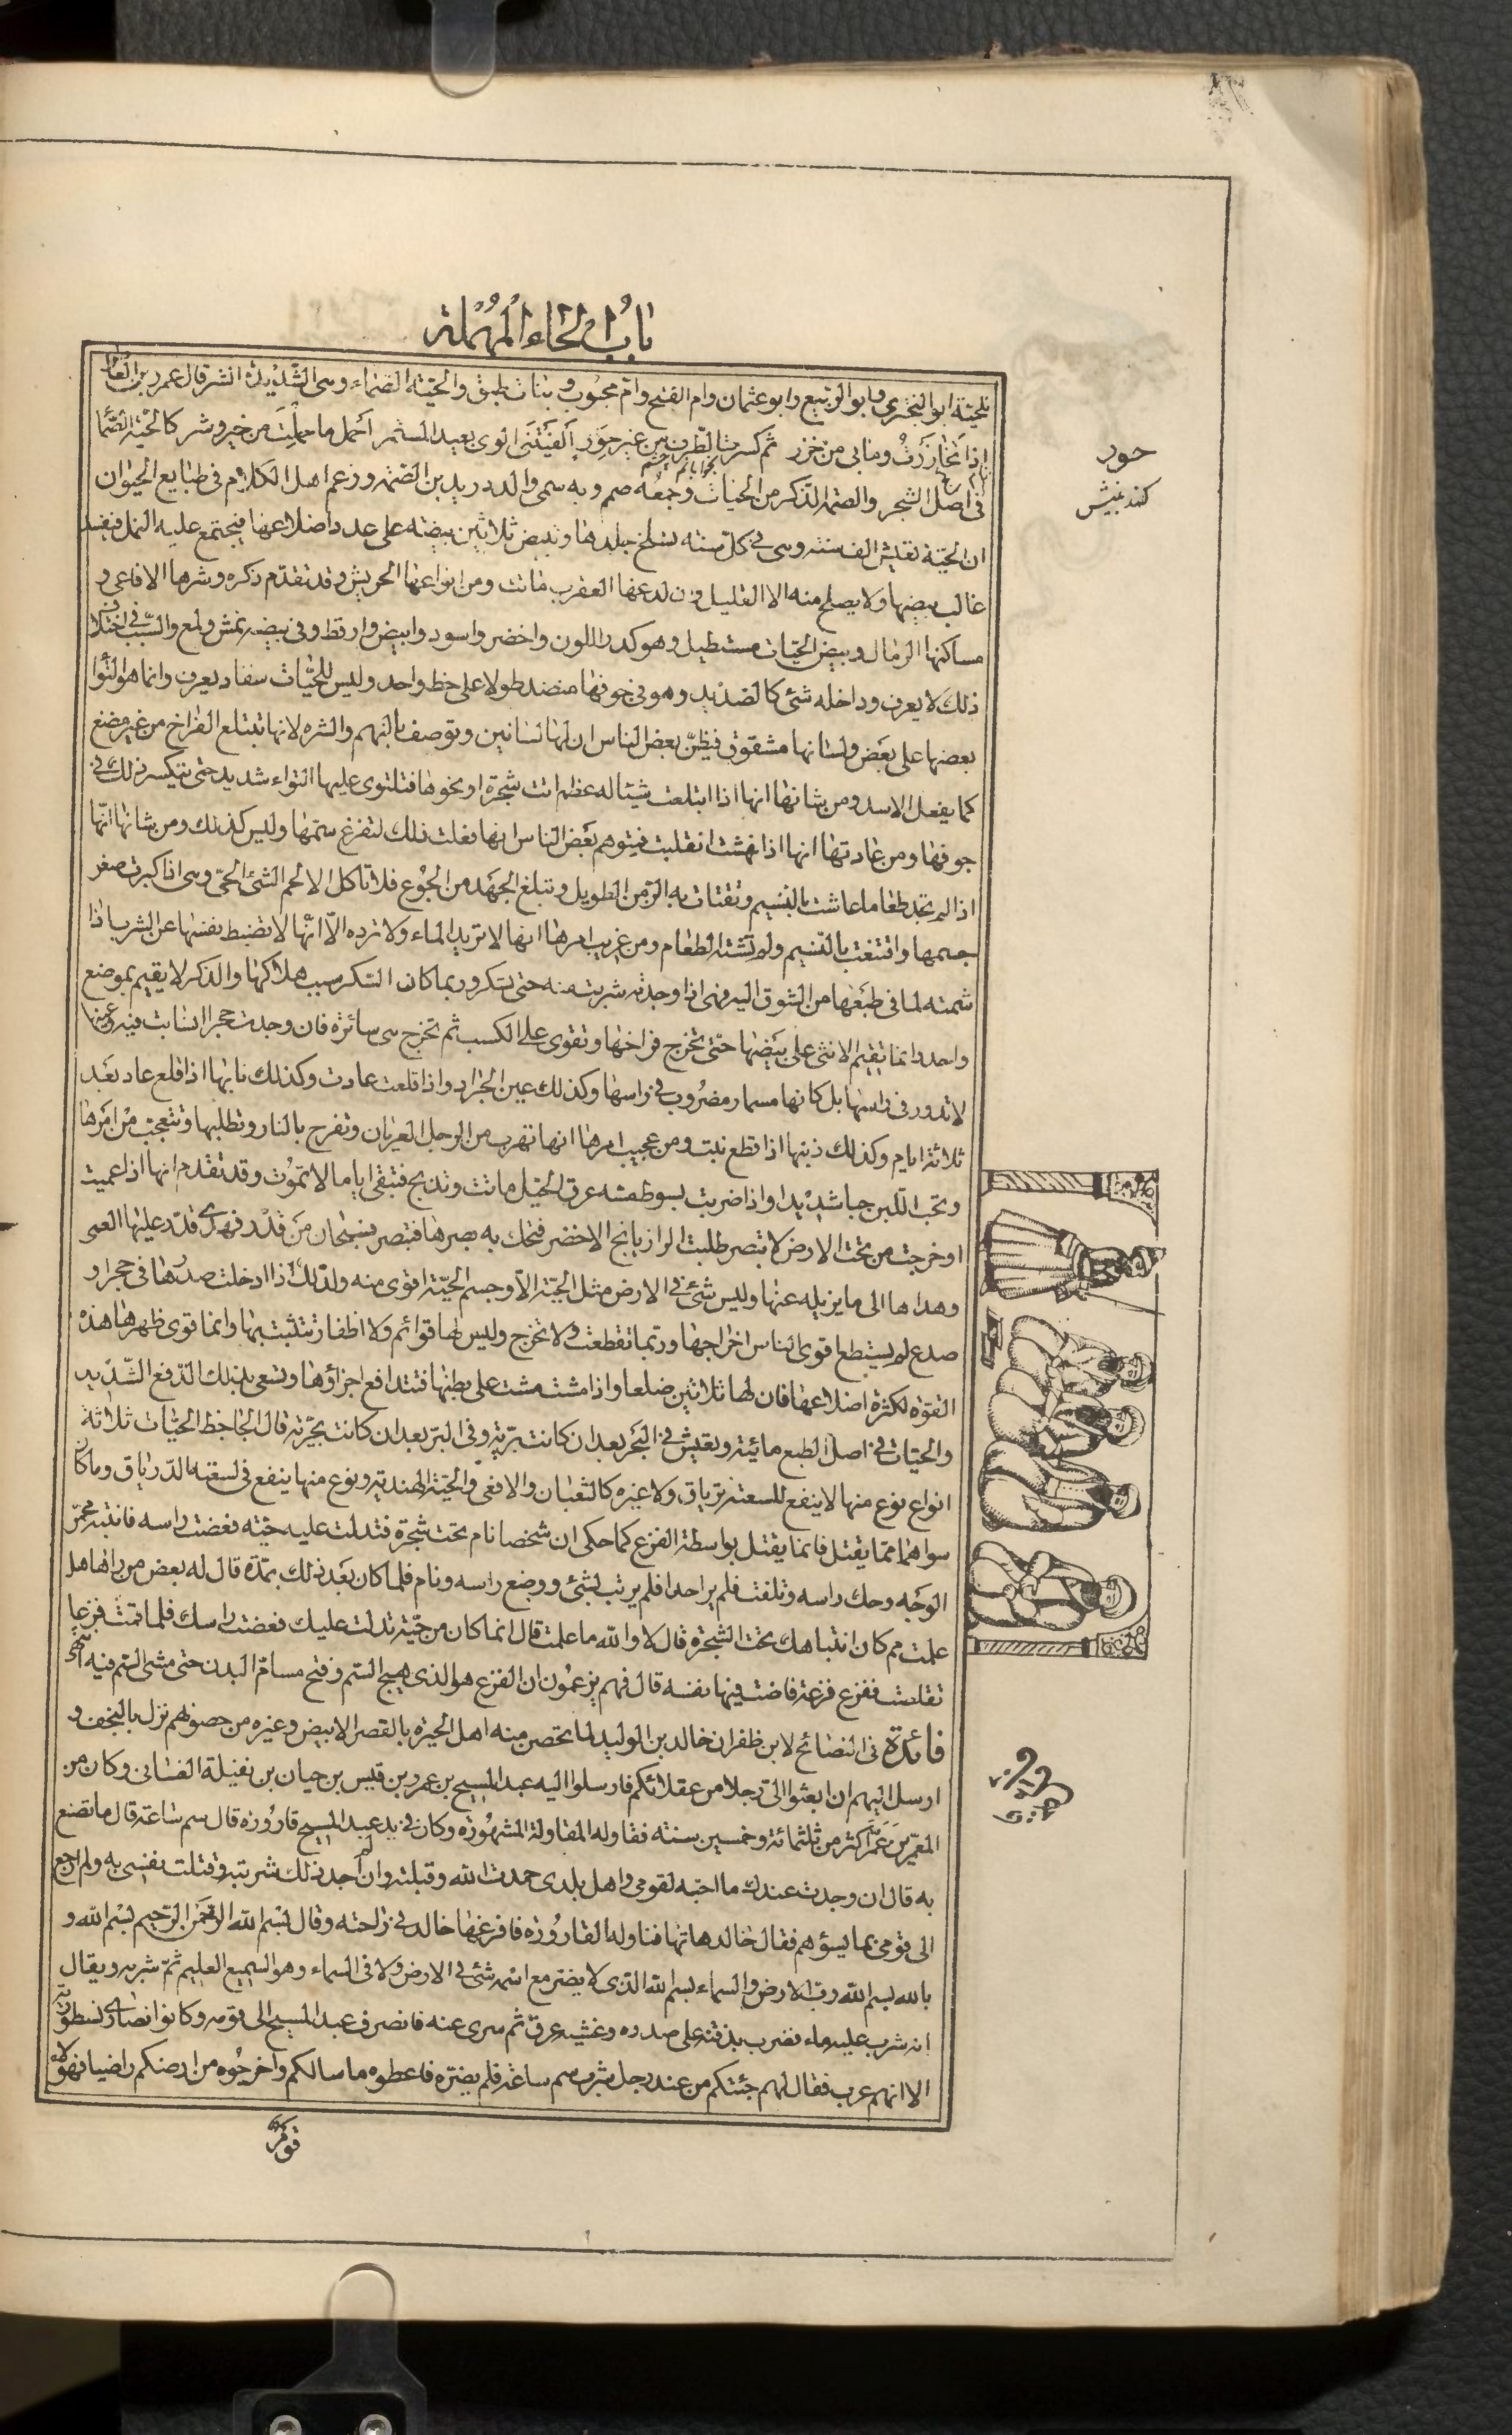 باب الحاء المهملة
للحية ابو البختري وابو الربيع وابو عثمان وام الفتح وام محبوب وبنات طبق والحية الصماء وهى الشديدة الشر قال عمرو بن العاص
اذا تخازرت ومابى من خزر ثم كسرت الطرف من غير حور الفيتنى الوى بعيد المستمر احمل ما حملت من خير وشر كالحية الصما
فى اصل الشجر والصمة الذكر من الحيات وجمعه صمم وبه سمى والد دريد بن الصمة وزعم اهل الكلام فى طبايع الحيوان
ان الحية تعيش الف سنة وهى فى كل سنة تسلخ جلدها وتبيض ثلاثين بيضة على عدد اضلاعها فيجتمع عليه النمل فيفسد
غالب بيضها ولا يصلح منه الا القليل وان لدغها العقرب ماتت ومن انواعها الحريش وقد تقدم ذكره وشرها الافاعى و
مساكنها الرمال وبيض الحيات مستطيل وهو كدر اللون واخضر واسود وابيض وارقط وفى بيضه نمش ولمع والسبب فى اختلاف
ذلك لا يعرف وداخله شئ كالصديد وهو فى جوفها منضد طولا على خط واحد وليس للحيات سفاد يعرف وانما هو التوا
بعضها على بعض ولسانها مشقوق فيظن بعض الناس ان لها لسانين وتوصف بالنهم والشره لانها تبتلع الفراخ من غير مضغ
كما يفعل الاسد ومن شانها انها اذا ابتلعت شيئا له عظم اتت شجرة او نحوها فتلتوى عليها التواء شديد حتى يتكسر ذلك فى
جوفها ومن عادتها انها اذا نهشت انقلبت فيتوهم بعض الناس انها فعلت ذلك لتفرغ سمها وليس كذلك ومن شانها انها
اذا لم تجد طعاما عاشت بالنسيم وتقتات به الزمن الطويل وتبلغ الجهد من الجوع فلا تاكل الا لحم الشئ الحى وهى اذا كبرت صغر
جسمها واقتنعت بالنسيم ولم تشته الطعام ومن غريب امرها انها لا تريد الماء ولا ترده الا انها لا تضبط نفسها عن الشرب اذا
شمته لما فى طبعها من الشوق اليه فهى اذا وجدته شربت منه حتى تسكر وربما كان السكر سبب هلاكها والذكر لا يقيم بموضع
واحد وانما تقيم الانثى على بيضها حتى تخرج فراخها وتقوى على الكسب ثم تخرج هى سائرة فان وجدت حجرا انسابت فيه وعينها
لا تدور فى راسها بل كانها مسمار مضروب فى راسها وكذلك عين الجراد واذا قلعت عادت وكذلك نابها اذا قلع عاد بعد
ثلاثة ايام وكذلك ذنبها اذا قطع نبت ومن عجيب امرها انها تهرب من الرجل العريان وتفرح بالنار وتطلبها وتتعجب من امرها
وتحب اللبن حبا شديدا واذا ضربت بسوط مسه عرق الخيل ماتت وتذبح فتبقى اياما لا تموت وقد تقدم انها اذا عميت
او خرجت من تحت الارض لا تبصر طلبت الرازيانج الاخضر فتحك به بصرها فتبصر فسبحان من قدر فهدى قدر عليها العمى
وهداها الى ما يزيله عنها وليس شئ فى الارض مثل الحية الا وجسم الحية اقوى منه ولذلك اذا ادخلت صدرها فى حجر او
صدع لم يستطع اقوى الناس اخراجها وربما تقطعت ولا تخرج وليس لها قوائم ولا اظفار تتثبت بها وانما قوى ظهرها هذه
القوة لكثرة اضلاعها فان لها ثلاثين ضلعا واذا مشت مشت على بطنها فتتدافع اجزاؤها وتسعى بذلك الدفع الشديد
والحيات فى اصل الطبع مائية وتعيش فى البحر بعد ان كانت برية وفى البر بعد ان كانت بحرية قال الجاحظ الحيات ثلاثة
انواع نوع منها لا ينفع للسعته ترياق ولا غيره كالثعبان والافعى والحية الهندية ونوع منها ينفع فى لسعته الدرياق وما كان
سواهما مما يقتل فانما يقتل بواسطة الفزع كما حكى ان شخصا نام تحت شجرة فتدلت عليه حية فعضت راسه فانتبه محمر
الوجه وحك راسه وتلفت فلم ير احدا فلم يرتب لشئ ووضع راسه ونام فلما كان بعد ذلك بمدة قال له بعض من راها هل
علمت مم كان انتباهك تحت الشجرة قال لا والله ما علمت قال انما كان من حية تدلت عليك فعضت راسك فلما قمت فزعا
تقلصت ففزع فزعة فاضت فيها نفسه قال فهم يزعمون ان الفزع هو الذى هيج السم وفتح مسام البدن حتى مشى السم فيه انتهى
فائدة فى النصائح لابن ظفر ان خالد بن الوليد لما تحصن منه اهل الحيرة بالقصر الابيض وغيره من حصونهم نزل بالنجف و
ارسل اليهم ان ابعثوا الى رجلا من عقلائكم فارسلوا اليه عبد المسيح بن عمرو بن قيس بن حيان بن نفيلة الغسانى وكان من
المعمرين عمر اكثر من ثلثمائة وخمسين سنة فقاوله المقاولة المشهورة وكان فى يد عبد المسيح قارورة قال سم ساعة قال ما تصنع
به قال ان وجدت عندك ما احبه لقومى واهل بلدى حمدت الله وقبلته وان لم اجد ذلك شربته وقتلت نفسى به ولم ارجع
الى قومى بما يسؤهم فقال خالد هاتها فناوله القارورة فافرغها خالد فى راحته وقال بسم الله الرحمن الرحيم بسم الله و
بالله بسم الله رب الارض والسماء بسم الله الذى لا يضر مع اسمه شئ فى الارض ولا فى السماء وهو السميع العليم ثم شربه ويقال
انه شرب عليه ماء فضرب بذقنه على صدره وغشيه عرق ثم سرى عنه فانصرف عبد المسيح الى قومه وكانوا نصارى نسطورية
الا انهم عرب فقال لهم جئتكم من عند رجل شرب سم ساعة فلم يضره فاعطوه ما سالكم واخرجوه من ارضكم راضيا فهؤلاء
حور
كندبنش